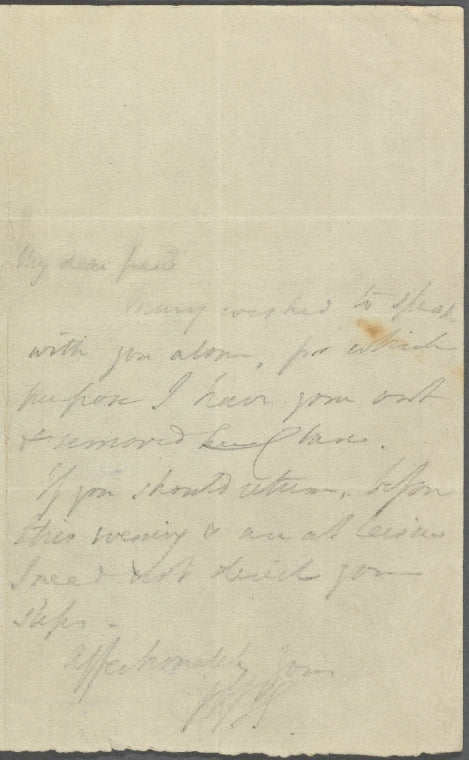 My dear friend
Mary wished to speak
with you alone, for which
purpose I have gone out
& removed Clare.
If you should return, before
this evening & are at leisure
I need not direct your
steps.
Affectionately yours